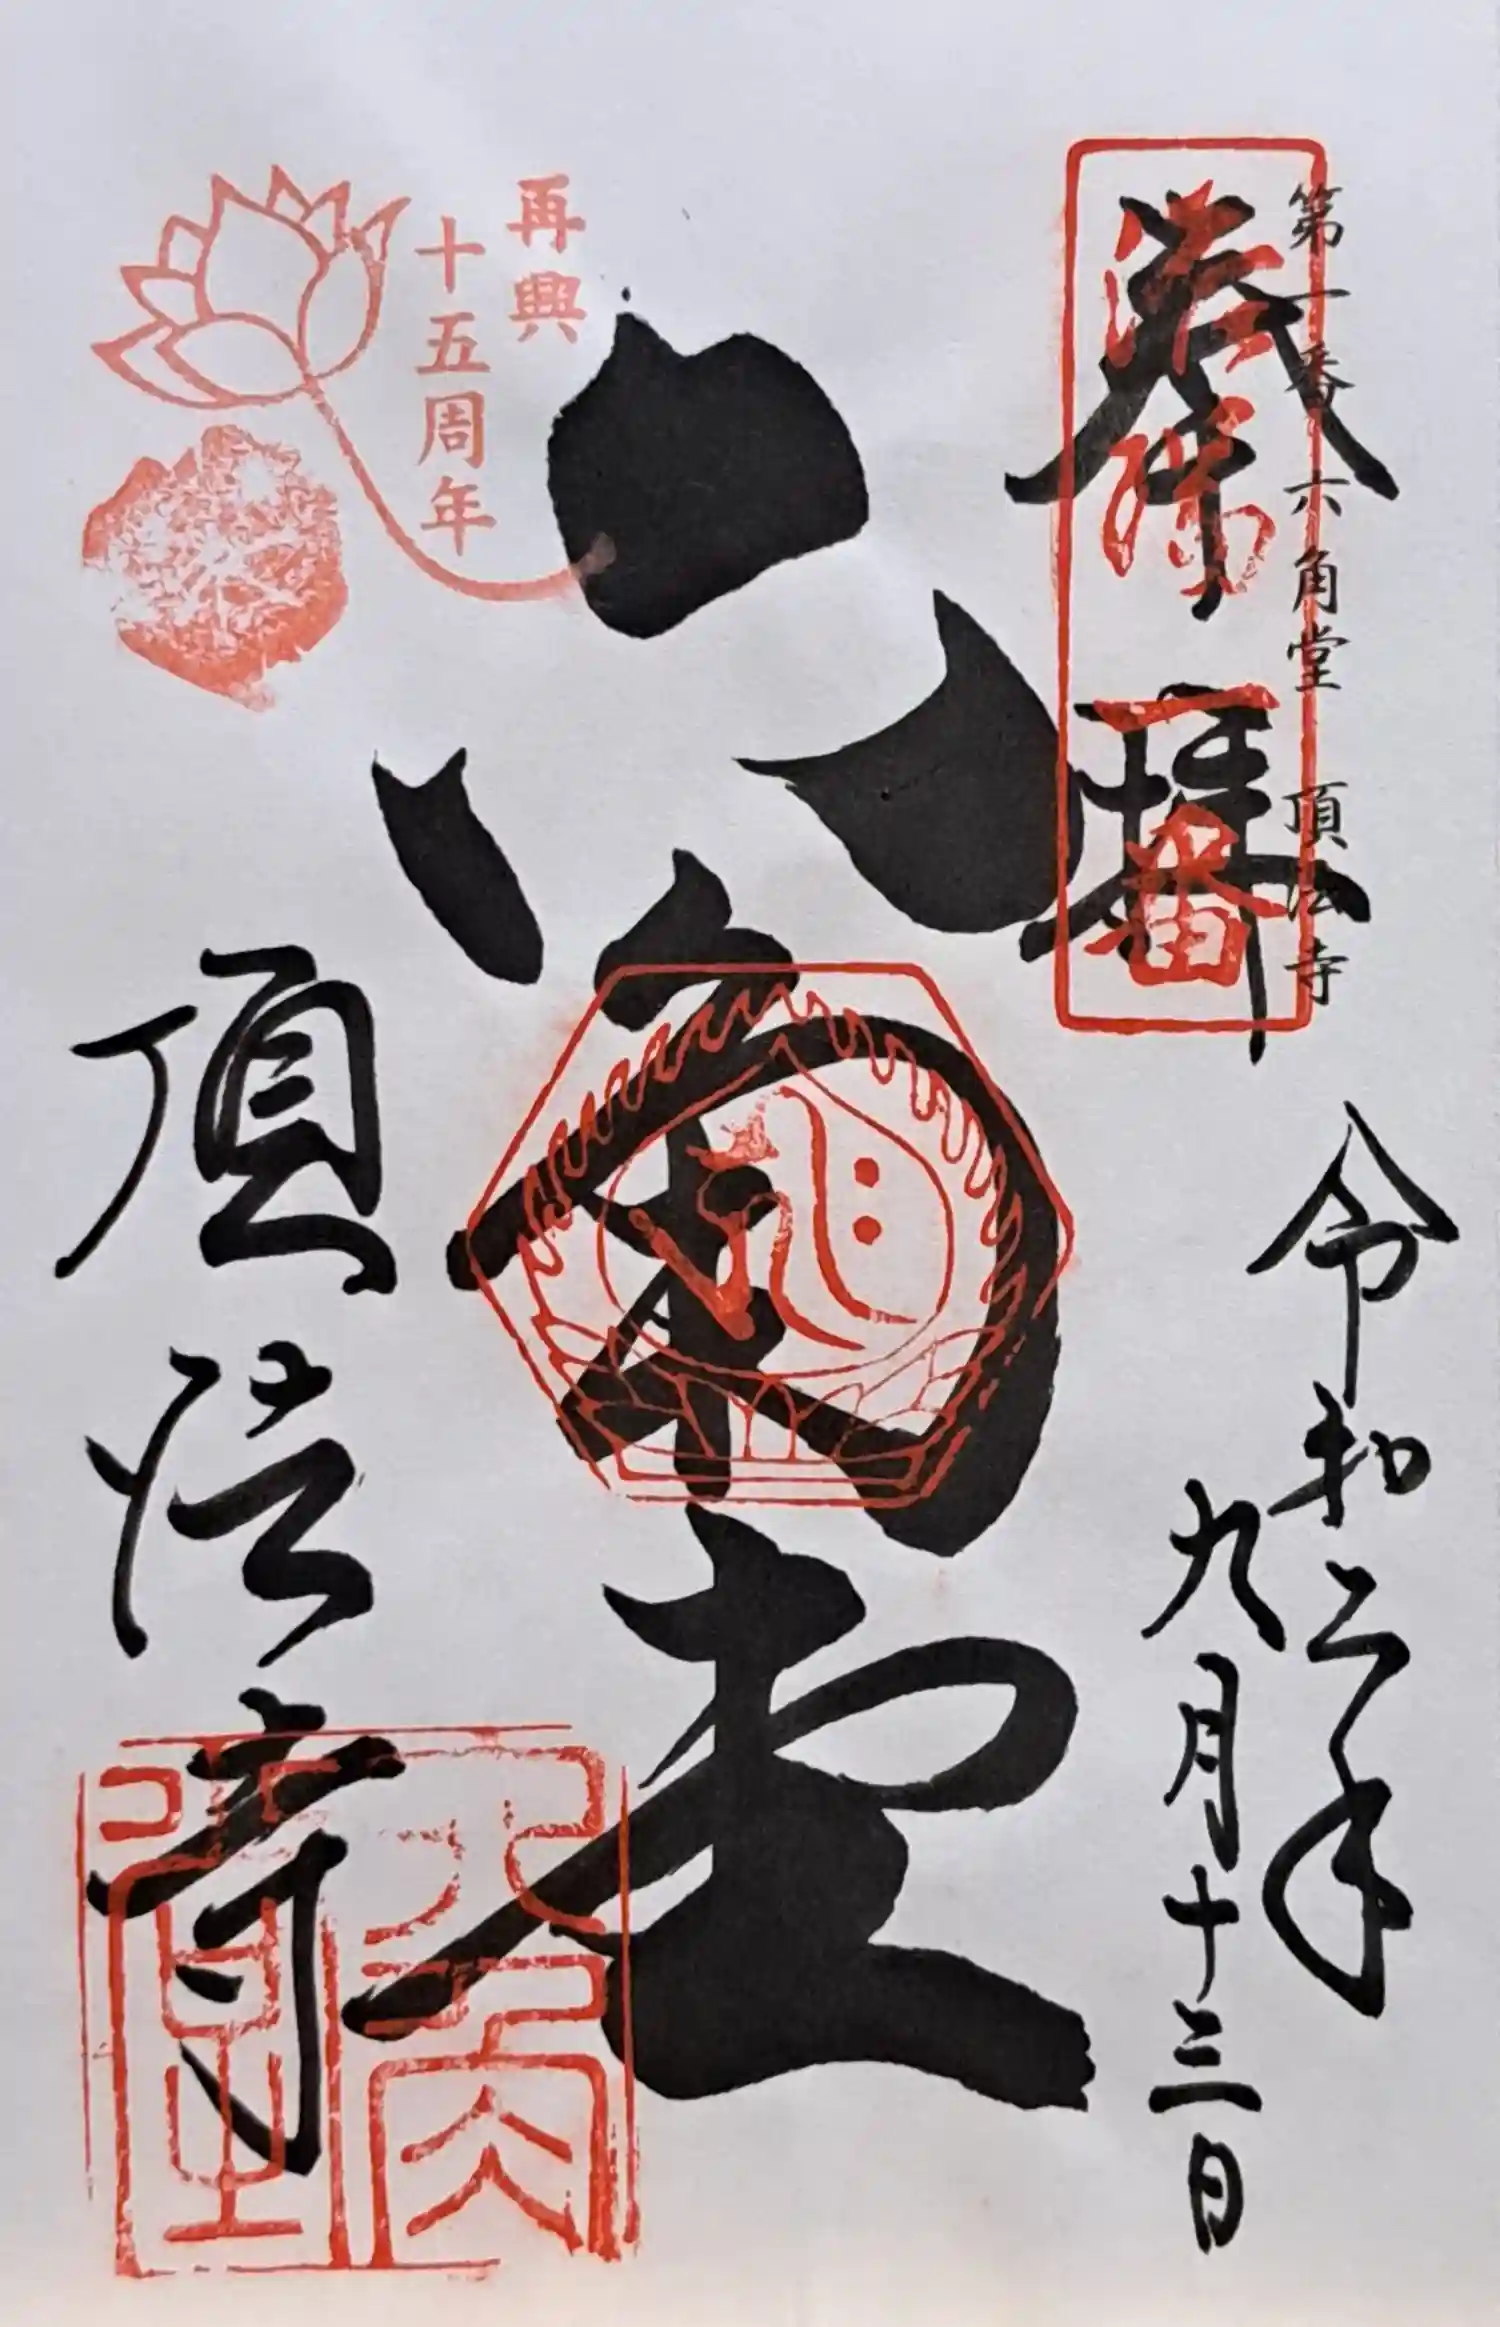 第一番 六角堂 頂法寺
奉拝
洛陽
一番
令和二年
九月十三日
六角堂
再興
十五周年
頂法寺